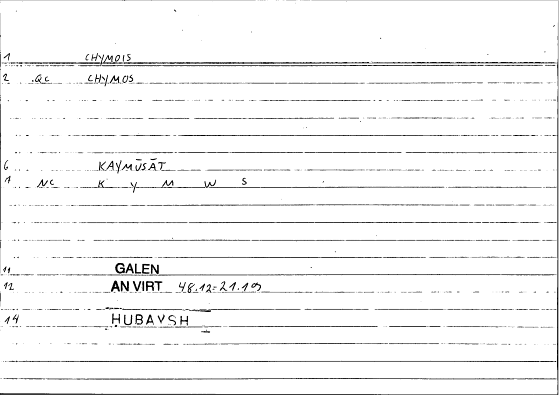 1 CHYMOIS
2 .QC CHYMOS
6 KAYMŪSĀT
1 NC K Y M W S
11 GALEN
12 AN VIRT 48.12=21.19
14 ḤUBAYSH